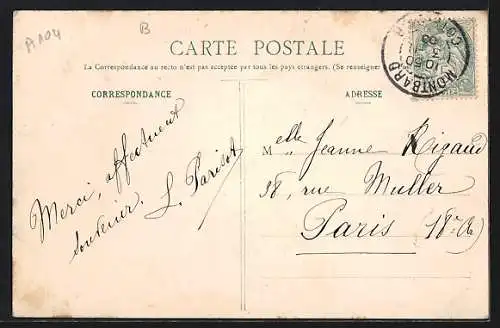 A104
B
CARTE POSTALE
La Correspondance au recto n'est pas acceptée par tous les pays étrangers. (Se renseigner
CORRESPONDANCE
ADRESSE
MONTBARD
CÔTE D'OR
Merci, affectueux
souvenir. L. Parisot
Melle Jeanne Rigaud
38, rue Muller
Paris 18e